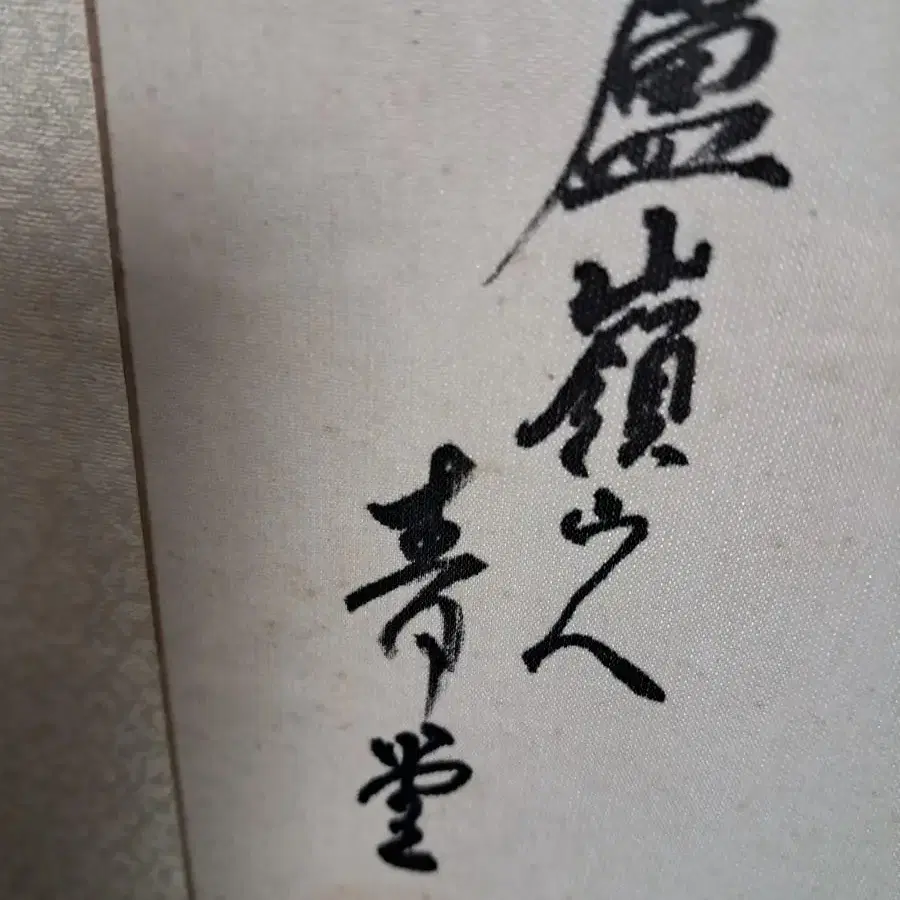 盧嶺山人
青堂